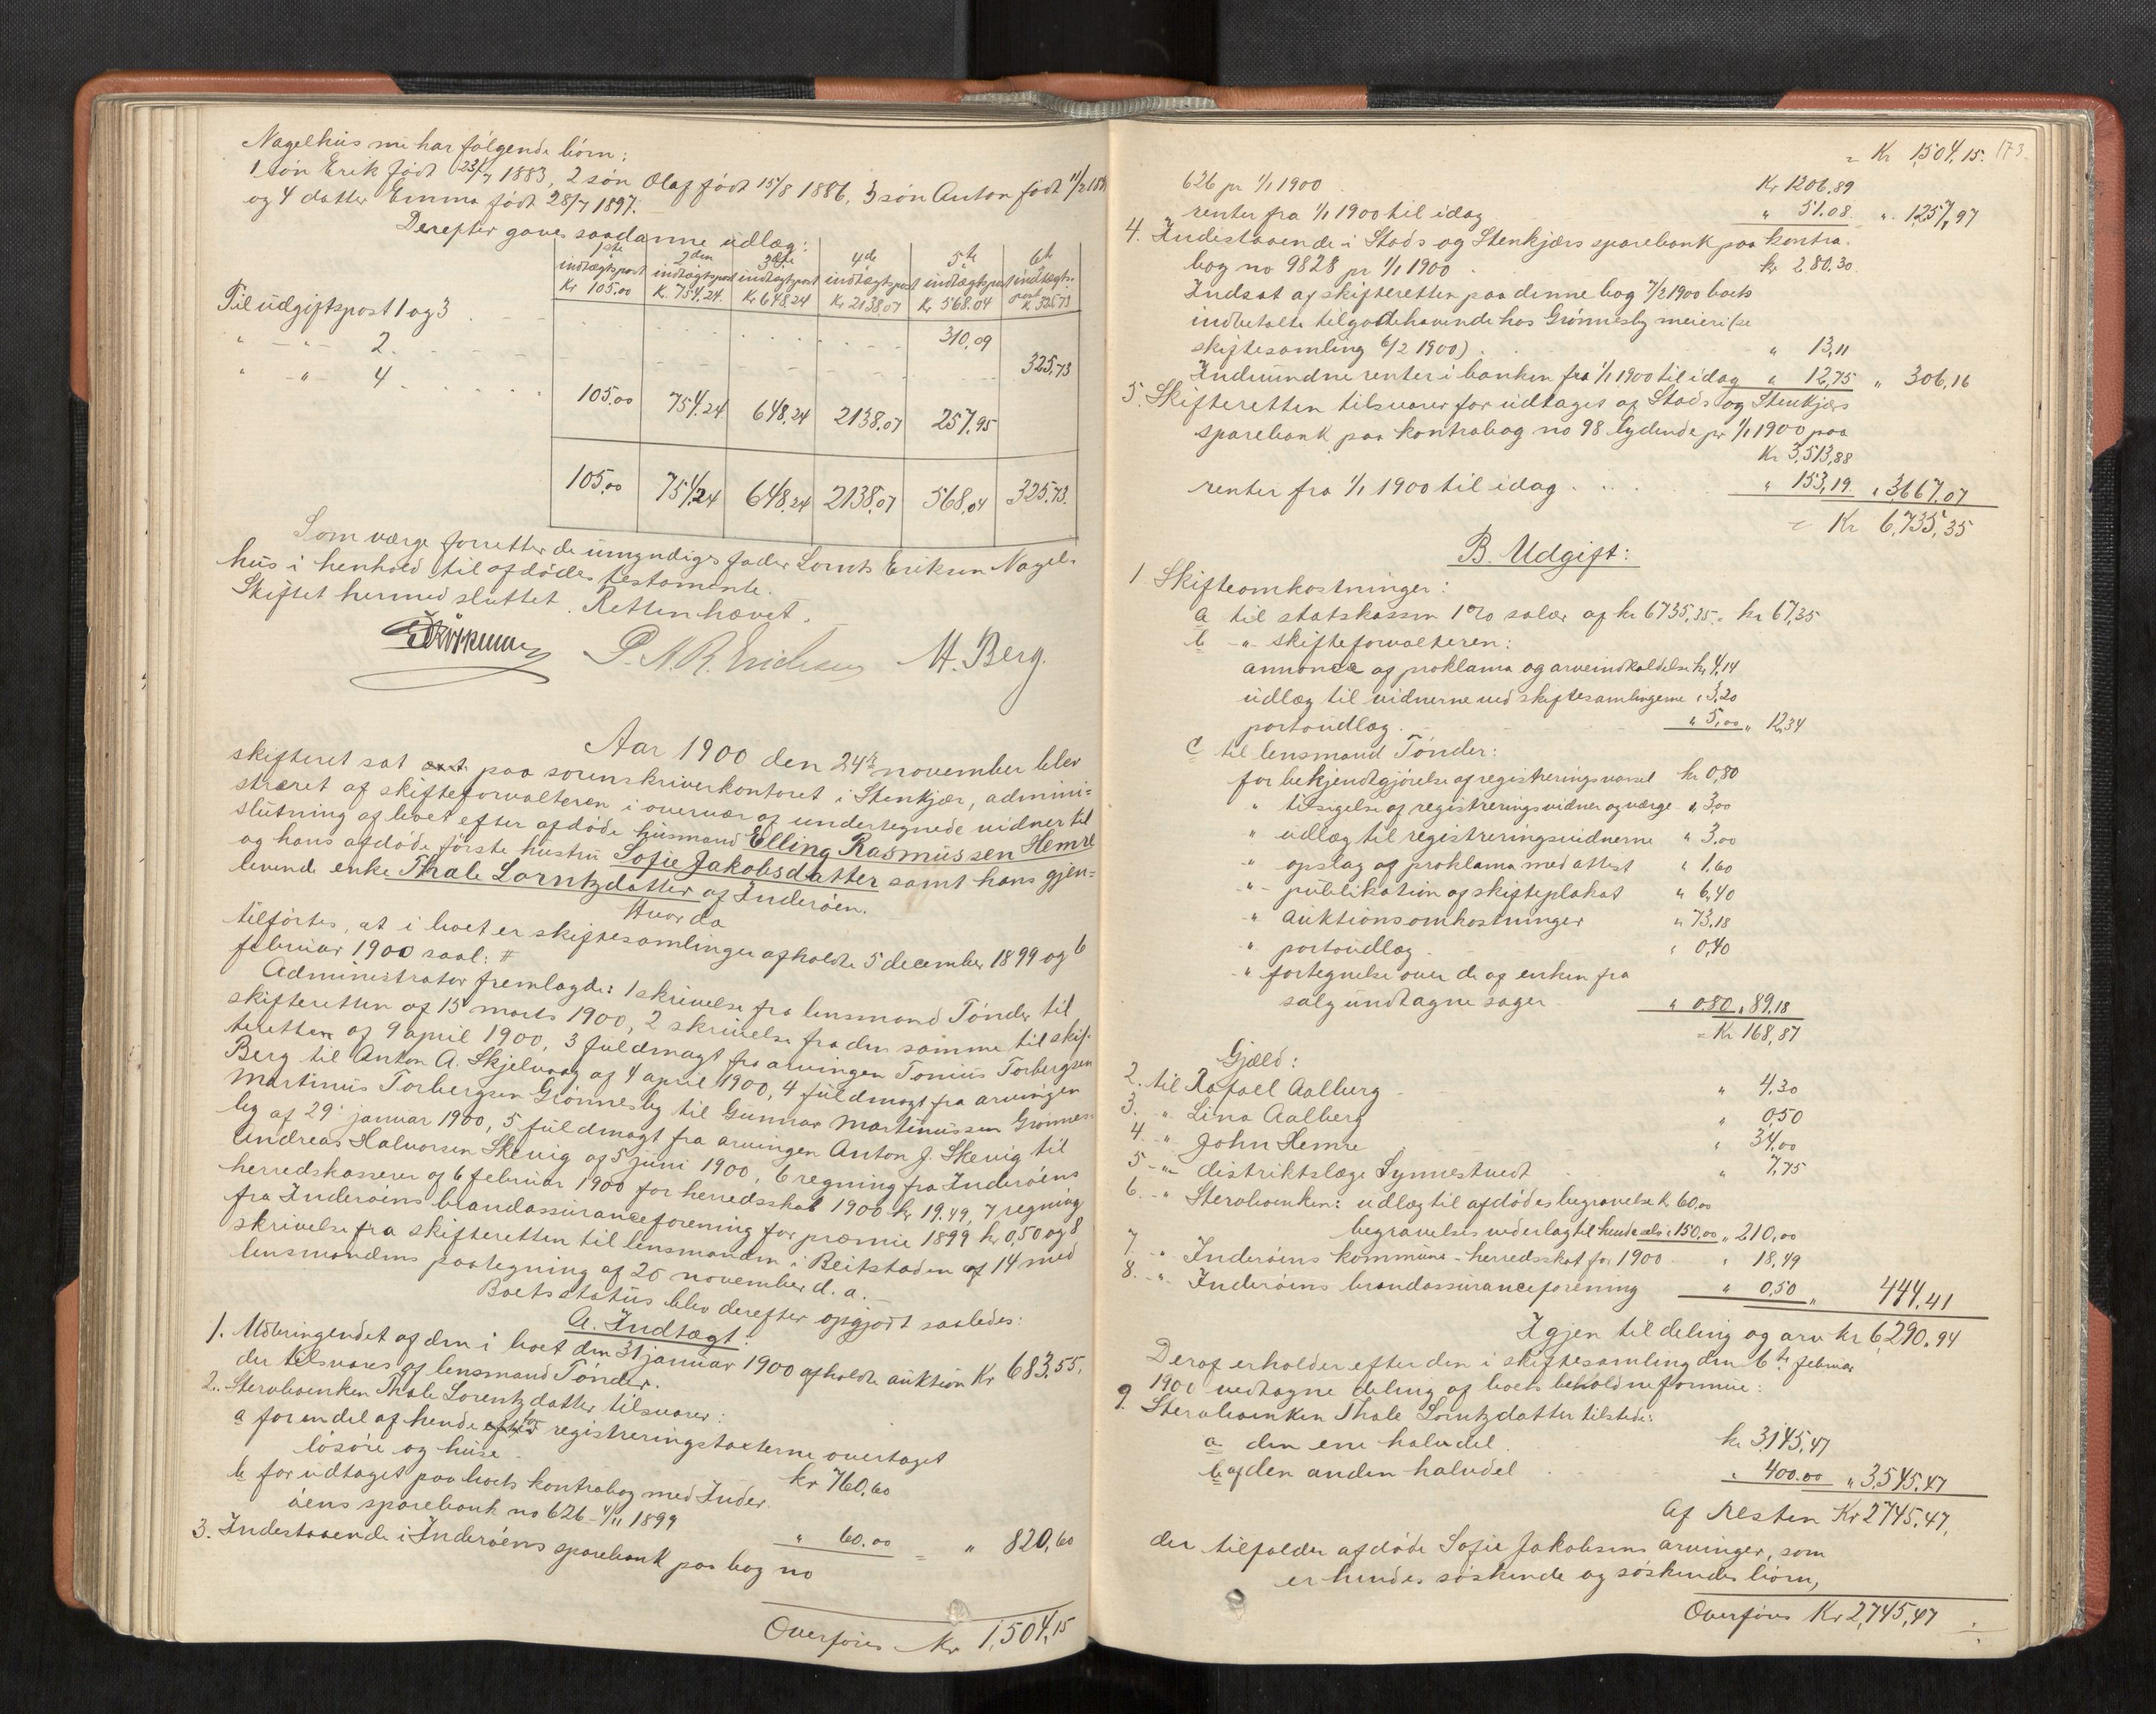 Nagelhus mi har følgende børn:
1 søn Erik født 23/7 1883, 2 søn Olaf født 15/8 1886, 3 søn Anton født 11/2 18
og 4 datter Emma født 28/7 1897.
Derefter gaves saadanne udlæg:
1ste indtægtspost Kr 105.00 2den indtægtspost K. 754.24 3die indtægtspost Kr 648.24 4de indtægtspost Kr 2138,07 5te indtægtspost Kr 568.04 6te indtægts- post K 325.73
Til udgiftspost 1 og 3 310,09
" -"- 2. 325,73
" -"- 4 105.00 754.24 648.24 2138.07 257.95
105.00 754.24 648.24 2138.07 568.04 325.73.
Som værge forretter de umyndiges fader Lornts Eriksen Nagel-
hus i henhold til afdødes testamente.
Skiftet hermed sluttet. Retten hævet.
P. A. R. Erichsen M. Berg.
Aar 1900 den 24de november blev
skifteret sat paa sorenskriverkontoret i Stenkjær, admini=
streret af skifteforvalteren i overvær af undertegnede vidner til
slutning af boet efter afdøde husmand Elling Rasmussen Hemre
og hans afdøde første hustru Sofie Jakobsdatter samt hans gjen=
levende enke Thale Lorntzdatter af Inderøen.
Hvor da
tilførtes, at i boet er skiftesamlinger afholdte 5 december 1899 og 6
februar 1900 saal: #
Administrator fremlagde: 1 skrivelse fra lensmand Tønder til
skifteretten af 15 marts 1900, 2 skrivelse fra den samme til skif-
teretten af 9 april 1900, 3 fuldmagt fra arvingen Tonius Torbergsen
Berg til Anton A. Skjelvaag af 4 april 1900, 4 fuldmagt fra arvingen
Martinus Torbergsen Grønnesby til Gunnar Martinussen Grønnes-
by af 29 januar 1900, 5 fuldmagt fra arvingen Anton J. Skevig til
Andreas Halvorsen Skevig af 5 juni 1900, 6 regning fra Inderøens
herredskasserer af 6 februar 1900 for herredsskat 1900 kr 19.49, 7 regning
fra Inderøens brandassuranceforening for præmie 1899 kr 0,50 og 8
skrivelse fra skifteretten til lensmanden i Beitstaden af 14 med
lensmandens paategning af 20 november d. a. –
Boets status blev derefter opgjort saaledes:
A. Indtægt.
1. Udbringendet af den i boet den 31 januar 1900 afholdte auktion Kr 683,55,
der tilsvares af lensmand Tønder.
2. Stervboenken Thale Lorentzdatter tilsvarer:
a for en del af hende efter registreringstaxterne overtaget
løsøre og huse kr 760,60
b for udtaget paa boets kontrabog med Inder-
øens sparebank no 626 - 4/11 1899 " 60.00 = " 820,60
3. Indestaaende i Inderøens sparebank paa bog no
Overføres Kr 1,504,15
= Kr 1,504,15. 173.
626 pr 1/1 1900 Kr 1206.89
renter fra 1/1 1900 til idag " 51.08. ". 1257,97
4. Indestaaende i Stods og Stenkjærs sparebank paa kontra-
bog no 9828 pr 1/1 1900 kr 280.30
Indsat af skifteretten paa denne bog 7/2 1900 boets
indbetalte tilgodehavende hos Grønnesby meieri (se
skiftesamling 6/2 1900) " 13,11
Indvundne renter i banken fra 1/1 1900 til idag " 12,75 " 306,16
5. Skifteretten tilsvarer for udtaget af Stods og Stenkjærs
sparebank paa kontrabog no 98 lydende pr 1/1 1900 paa
Kr 3,513,88
renter fra 1/1 1900 til idag " 153,19. " 3,667,07
= Kr 6,735,35
B. Udgift:
1 Skifteomkostninger:
a til statskassen 1% salær af kr 6735,35 = kr 67,35
b -"- skifteforvalteren:
annonce af proklama og arveindkaldelse kr 4,14
udlæg til vidnerne ved skiftesamlingerne " 3,20
portoudlæg " 5,00 " 12,34
c til lensmand Tønder:
for bekjendtgjørelse af registreringsvarsel kr 0,80
" tilsigelse af registreringsvidner og værge " 3,00
" udlæg til registreringsvidnerne " 3,00
" opslag af proklama med attest " 1,60
" publikation af skifteplakat " 6,40
" auktionsomkostninger " 73,18
" portoudlæg " 0,40
" fortegnelse over de af enken fra
salg undtagne sager " 0,80 " 89,18
= Kr 168,87
Gjæld:
2. til Rafael Aalberg " 4.30
3. " Lina Aalberg " 0,50
4. " John Hemre " 34,00
5 -"- distriktslæge Synnestvedt " 7,75
6. -"- Stervboenken: udlæg til afdødes begravelse k 60,00
begravelsesvederlag til hende selv " 150,00 " 210,00
7. -"- Inderøens kommune - herredsskat for 1900 " 18,49
8. -"- Inderøens brandassuranceforening " 0,50 " 444,41
Igjen til deling og arv kr 6,290,94
Deraf erholder efter den i skiftesamling den 6te februar
1900 vedtagne deling af boets beholdne formue:
9. Stervboenken Thale Lorntzdatter tilstede:
a den ene halvdel kr 3145,47
b af den anden halvdel " 400.00 " 3,545,47
Af Resten Kr 2745,47,
der tilfalder afdøde Sofie Jakobsens arvinger, som
er hendes søskende og søskendes børn,
Overføres Kr 2,745,47